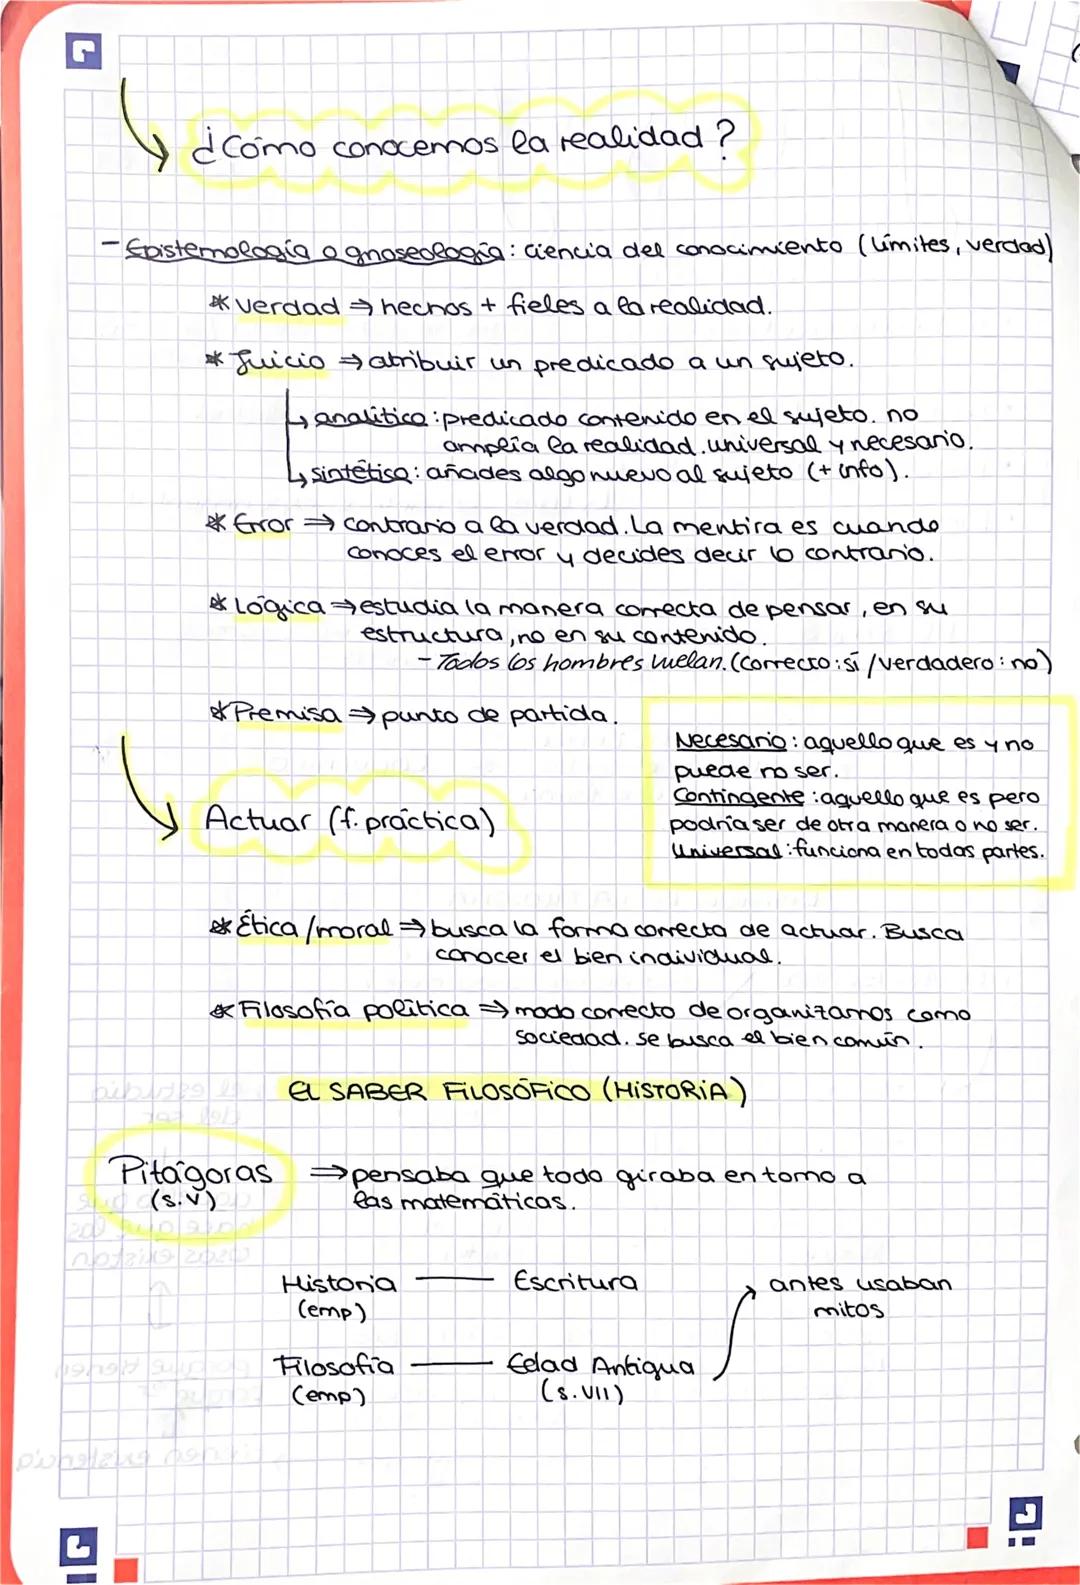 ¿Cómo conocemos la realidad?
- Epistemología o gnoseología: ciencia del conocimiento (límites, verdad)
* verdad ⇒ hechos + fieles a la realidad.
* Juicio ⇒ atribuir un predicado a un sujeto.
↳ analítico: predicado contenido en el sujeto. no
amplía la realidad. universal y necesario.
↳ sintético: añades algo nuevo al sujeto (+ info).
* Error ⇒ contrario a la verdad. La mentira es cuando
conoces el error y decides decir lo contrario.
* Lógica ⇒ estudia la manera correcta de pensar, en su
estructura, no en su contenido.
- Todos los hombres vuelan. (correcto: sí / verdadero: no)
* Premisa ⇒ punto de partida.
Necesario: aquello que es y no
puede no ser.
Contingente: aquello que es pero
podría ser de otra manera o no ser.
Universal: funciona en todas partes.
Actuar (f. práctica)
* Ética / moral ⇒ busca la forma correcta de actuar. Busca
conocer el bien individual.
* Filosofía política ⇒ modo correcto de organizarnos como
sociedad. se busca el bien común.
EL SABER FILOSÓFICO (HISTORIA)
Pitágoras ⇒ pensaba que todo giraba en torno a
(s.V) las matemáticas.
Historia — Escritura antes usaban
(emp) mitos
Filosofía — Edad Antigua
(emp) (s. VII)